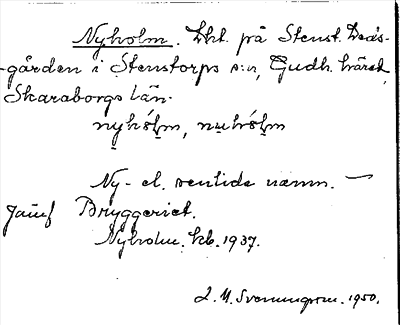 Nyholm. Lht. på Stenst. Präs-
gården i Stenstorps s:n, Gudh. härad,
Skaraborgs län.
nyhólm, nuhólm
Ny- el. nemn.
Jämf Bryggeriet.
Nyholm. kb. 1937.
1950.